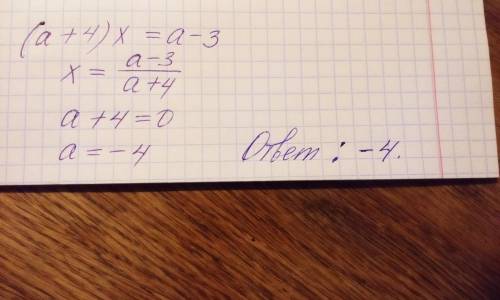 (a+4)x = a-3
x = \frac{a-3}{a+4}
a+4=0
a=-4 Ответ: -4.